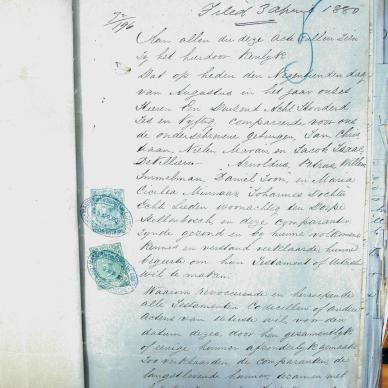 Filed 3 April 1880
Aan allen die deze Acte zullen zien
zij het hierdoor Kenlyk
Dat op heden den Negentienden dag
van Augustus in het jaar onzes
Heeren Een Duizend Acht Honderd
Zes en Vyftig, compareerde voor ons
de onderschrevene getuigen Jan Chris
Nielen Marais en Jacob Izaac
DeVilliers Arnoldus Petrus Willem
Immelman Daniel zoon, en Maria
Johannes Dochter
Echte Lieden woonachtig
Stellenbosch en deze comparanten
zynde gezond en by hunne volkomene
Kennis en verstand verklaarde hunne
begeerte om hun Testament of Uiterste
wil te maken.
Waarom revoceerende en herroepende
alle Testamenten Codicillen of andere
Acten van Uiterste wil, voor den
datum dezes door hen gezamentlyk
of eenige hunner afzonderlyk gemaakt
Zoo verklaarden de comparanten de
langstlevende hunner tezamen met